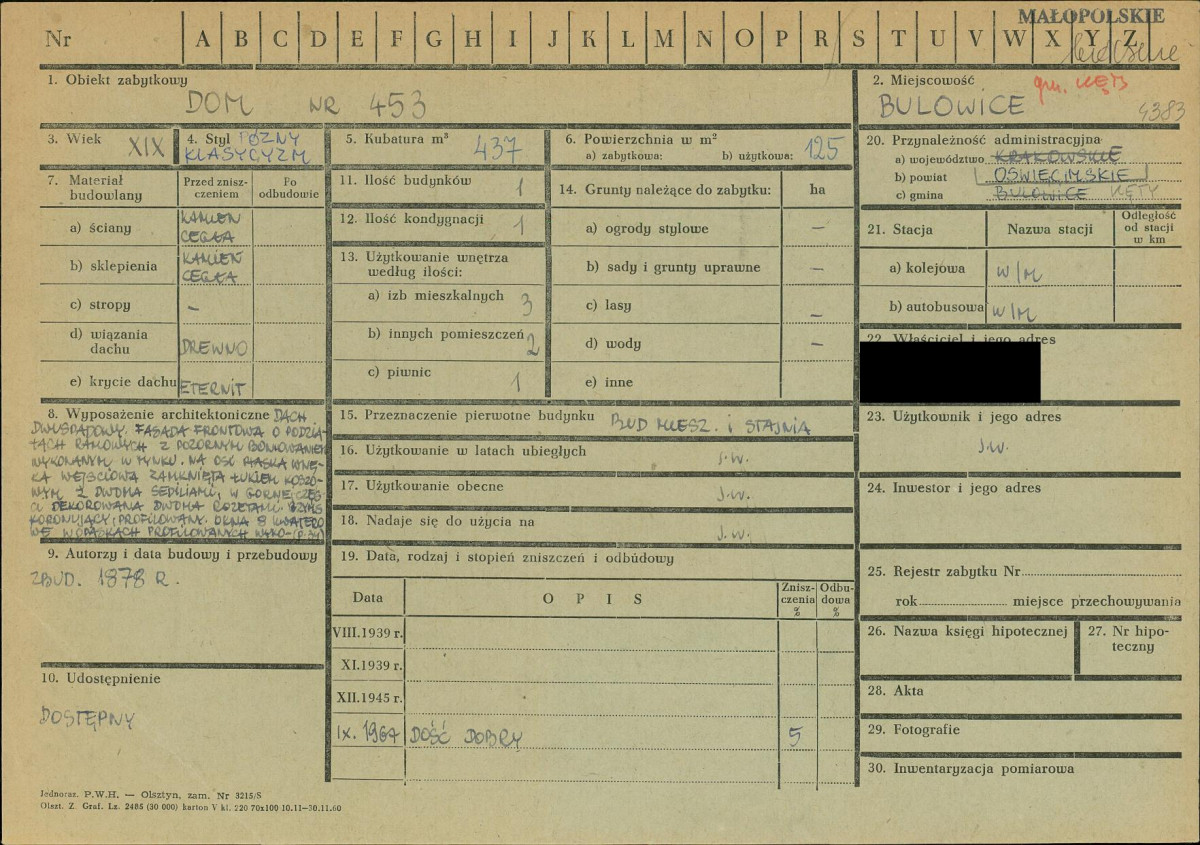 MAŁOPOLSKIE
Nr A B C D E F G H I J K L M N O P R S T U V W X Y Z
1. Obiekt zabytkowy
DOM NR 453
2. Miejscowość gm. KĘTY
BULOWICE 4383
3. Wiek XIX
4. Styl PÓŹNY
KLASYCYZM
5. Kubatura m³ 437
6. Powierzchnia w m²
a) zabytkowa: b) użytkowa: 125
7. Materiał
budowlany
Przed znisz-
czeniem
Po
odbudowie
a) ściany KAMIEŃ
CEGŁA
b) sklepienia KAMIEŃ
CEGŁA
c) stropy –
d) wiązania
dachu DREWNO
e) krycie dachu ETERNIT
11. Ilość budynków 1
12. Ilość kondygnacji 1
13. Użytkowanie wnętrza
według ilości:
a) izb mieszkalnych 3
b) innych pomieszczeń 2
c) piwnic 1
14. Grunty należące do zabytku: ha
a) ogrody stylowe –
b) sady i grunty uprawne –
c) lasy –
d) wody –
e) inne
20. Przynależność administracyjna
a) województwo KRAKOWSKIE
b) powiat OŚWIĘCIMSKIE
c) gmina BULOWICE KĘTY
21. Stacja Nazwa stacji Odległość
od stacji
w km
a) kolejowa W/M
b) autobusowa W/M
22. Właściciel i jego adres
8. Wyposażenie architektoniczne DACH
DWUSPADOWY. FASADA FRONTOWA O PODZIA-
ŁACH RAMOWYCH Z POZORNYM BONIOWANIEM
WYKONANYM W TYNKU. NA OSI PŁASKA WNĘ-
KA WEJŚCIOWA ZAMKNIĘTA ŁUKIEM KOSZO-
WYM Z DWOMA SEDILIAMI, W GÓRNEJ CZĘŚ-
CI DEKOROWANA DWOMA ROZETAMI. GZYMS
KORONUJĄCY, PROFILOWANY. OKNA 8 KWATERO-
WE W OPASKACH PROFILOWANYCH WYKO-
15. Przeznaczenie pierwotne budynku BUD MIESZ. I STAJNIA
16. Użytkowanie w latach ubiegłych J.W.
17. Użytkowanie obecne J.W.
18. Nadaje się do użycia na J.W.
23. Użytkownik i jego adres
J.W.
24. Inwestor i jego adres
9. Autorzy i data budowy i przebudowy
ZBUD. 1878 R.
10. Udostępnienie
DOSTĘPNY
19. Data, rodzaj i stopień zniszczeń i odbudowy
Data OPIS Znisz-
czenia
%
Odbu-
dowa
%
VIII.1939 r.
XI.1939 r.
XII.1945 r.
IX. 1964 DOŚĆ DOBRY 5
25. Rejestr zabytku Nr
rok miejsce przechowywania
26. Nazwa księgi hipotecznej
27. Nr hipo-
teczny
28. Akta
29. Fotografie
30. Inwentaryzacja pomiarowa
Jednoraz. P.W.H. — Olsztyn, zam. Nr 3215/S
Olszt. Z. Graf. Lz. 2485 (30 000) karton V kl. 220 70x100 10.11—30.11.60